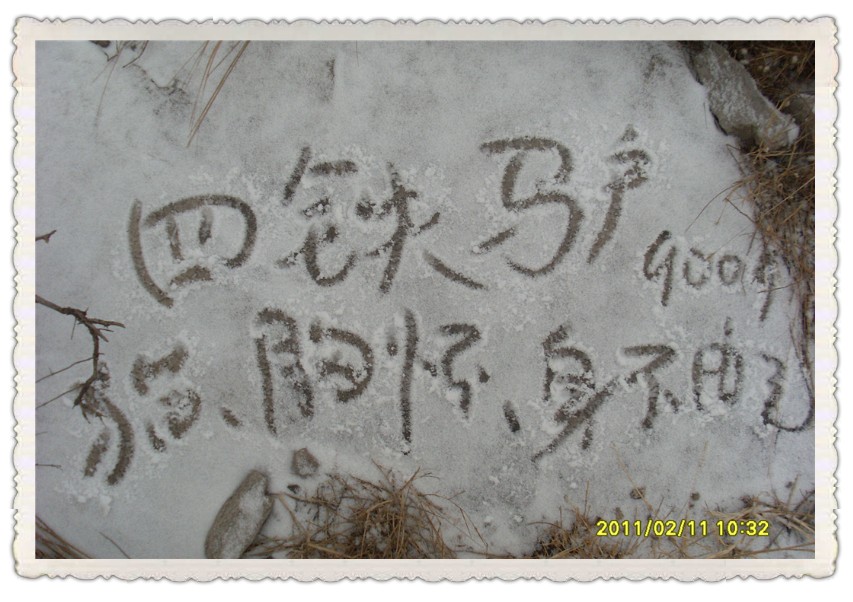 四铁驴 9009
强、胸怀、身不由己
2011/02/11 10:32